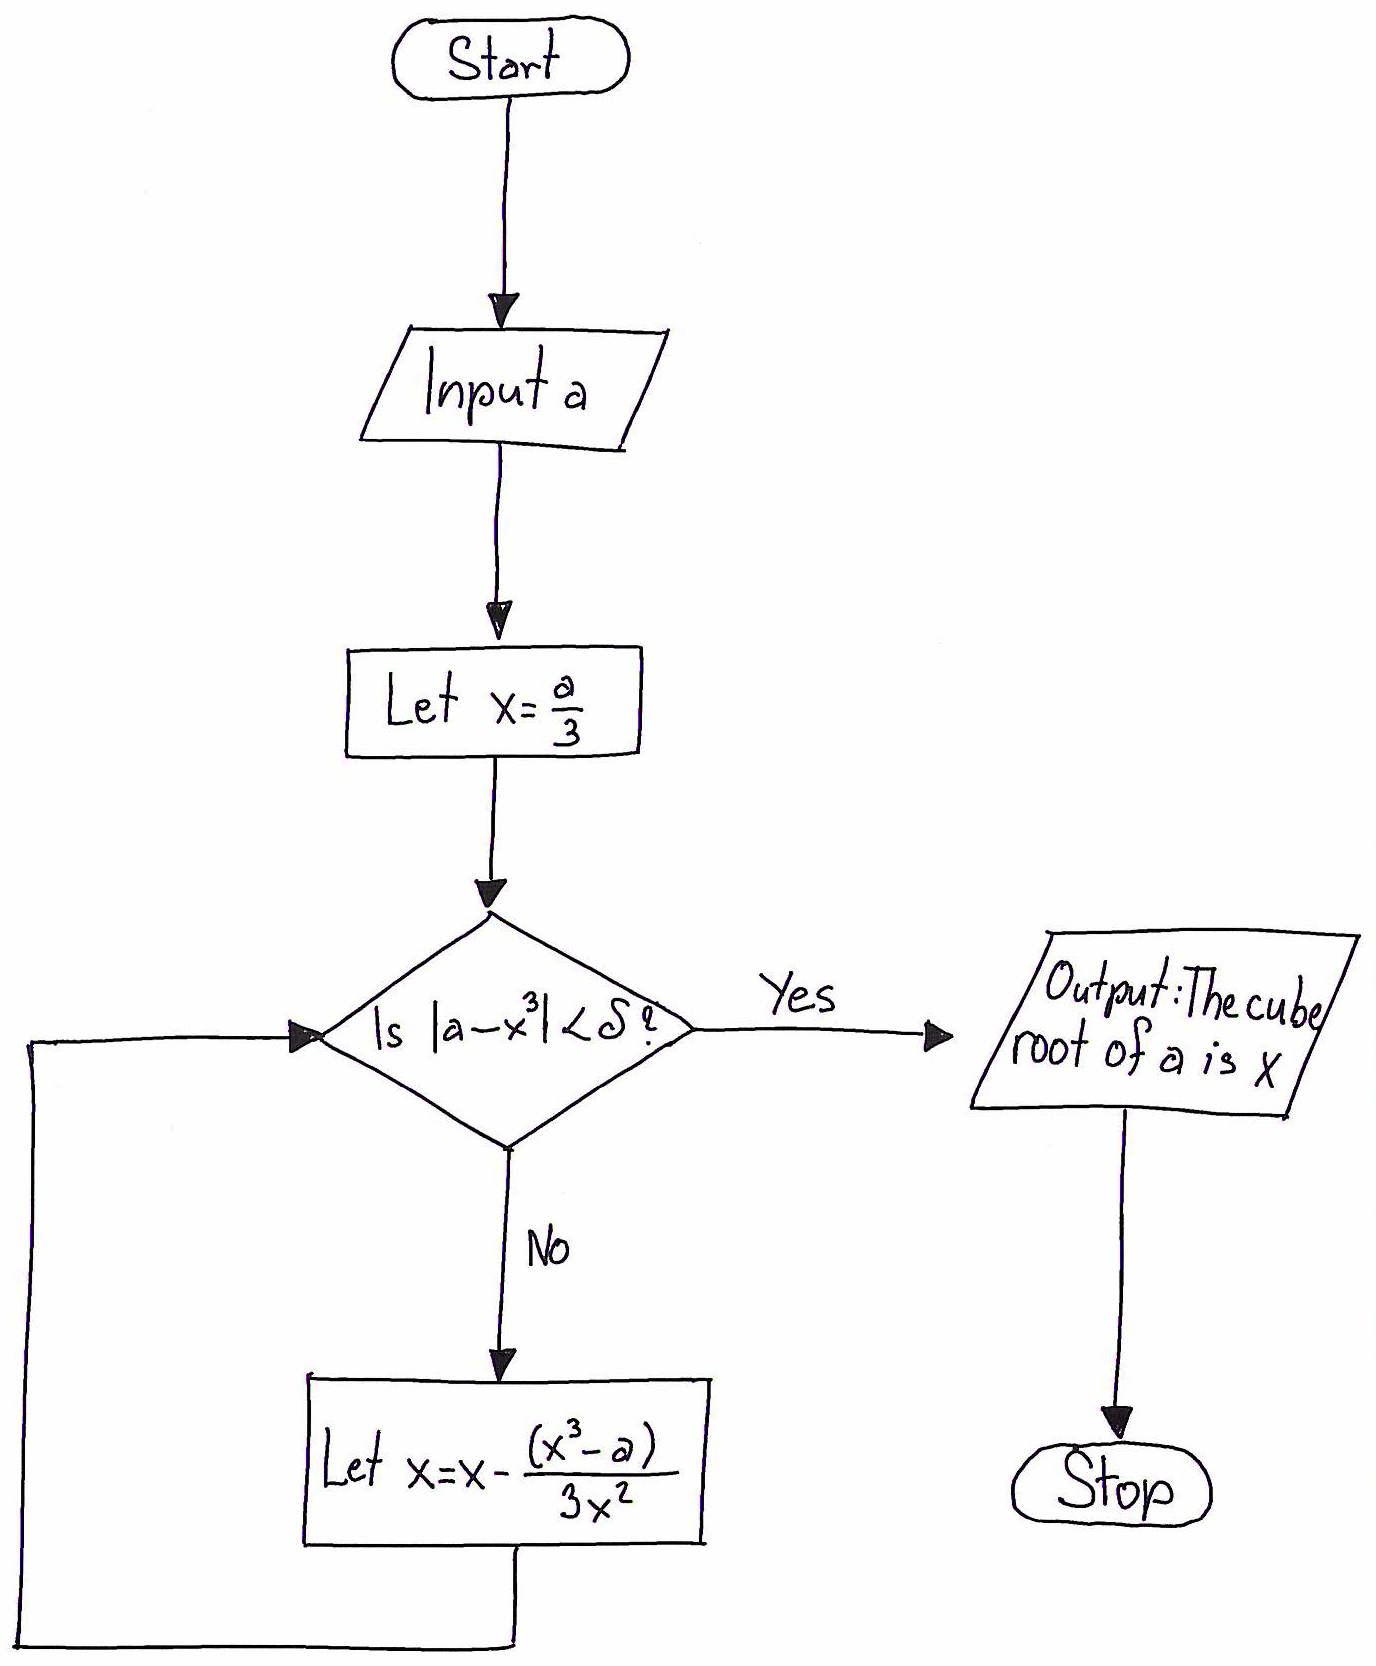 Start
Input a
Let x = a/3
Is |a - x³| < δ?
Yes
Output: The cube
root of a is x
No
Let x = x - (x³ - a)/3x²
Stop